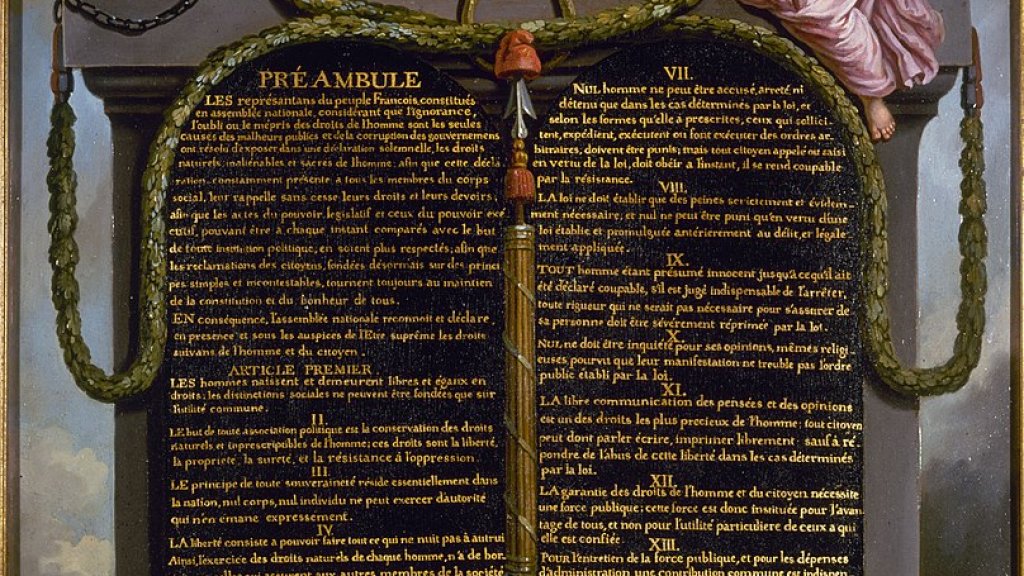 PRÉAMBULE
LES représantans du peuple François, constitués
en assemblée nationale, considérant que l'ignorance,
l'oubli ou le mépris des droits de l'homme sont les seules
causes des malheurs publics et de la corruption des gouvernemens
ont résolu d'exposer dans une déclaration solemnelle, les droits
naturels, inaliénables et sacrés de l'homme; afin que cette décla
ration, constamment présente a tous les membres du corps
social, leur rappelle sans cesse leurs droits et leurs devoirs,
afin que les actes du pouvoir législatif et ceux du pouvoir exé
cutif, pouvant être à chaque instant comparés avec le but
de toute institution politique, en soient plus respectés; afin que
les reclamations des citoyens, fondées désormais sur des princi
pes simples et incontestables, tournent toujours au maintien
de la constitution et du bonheur de tous.
EN conséquence, l'assemblée nationale reconnoit et déclare
en presence et sous les auspices de l'Etre suprême les droits
suivans de l'homme et du citoyen.
ARTICLE PREMIER
LES hommes naissent et demeurent libres et égaux en
droits; les distinctions sociales ne peuvent être fondées que sur
l'utilité commune.
II.
LE but de toute association politique est la conservation des droits
naturels et inprescriptibles de l'homme; ces droits sont la liberté,
la propriete, la sureté, et la résistance à l'oppression.
III
LE principe de toute souveraineté réside essentiellement dans
la nation, nul corps, nul individu ne peut exercer d'autorité
qui n'en émane expressément.
IV
LA liberté consiste a pouvoir faire tout ce qui ne nuit pas à autrui
Ainsi, l'exercice des droits naturels de chaque homme, n'a de bor-
nes que celles qui assurent aux autres membres de la société
VII.
NUL homme ne peut être accusé, arreté, ni
détenu que dans les cas déterminés par la loi, et
selon les formes qu'elle à prescrites, ceux qui sollici-
tent, expédient, exécutent ou font exécuter des ordres ar-
bitraires, doivent être punis; mais tout citoyen appelé ou saisi
en vertu de la loi, doit obéir a l'instant, il se rend coupable
par la résistance.
VIII.
LA loi ne doit établir que des peines strictement et évidem-
ment nécessaire, et nul ne peut être puni qu'en vertu d'une
loi établie et promulguée antérierement au délit, et légale
ment appliquée.
IX.
TOUT homme étant présumé innocent jusqu'a ce qu'il ait
été déclaré coupable, s'il est jugé indispensable de l'arrêter,
toute rigueur qui ne serait pas nécessaire pour s'assurer de
sa personne doit être sévèrement réprimée par la loi.
X.
NUL ne doit être inquiété pour ses opinions, mêmes religi
euses, pourvu que leur manifestation ne trouble pas l'ordre
public établi par la loi.
XI.
LA libre communication des pensées et des opinions
est un des droits les plus precieux de l'homme; tout citoyen
peut dont parler écrire, imprimer librement, sauf à ré
pondre de l'abus de cette liberté dans les cas déterminés
par la loi.
XII.
LA garantie des droits de l'homme et du citoyen nécessite
une force publique; cette force est donc instituée pour l'avan
tage de tous, et non pour l'utilité particuliere de ceux a qui
elle est confiée.
XIII.
POUR l'entretien de la force publique, et pour les dépenses
d'administration, une contribution commune est indispen